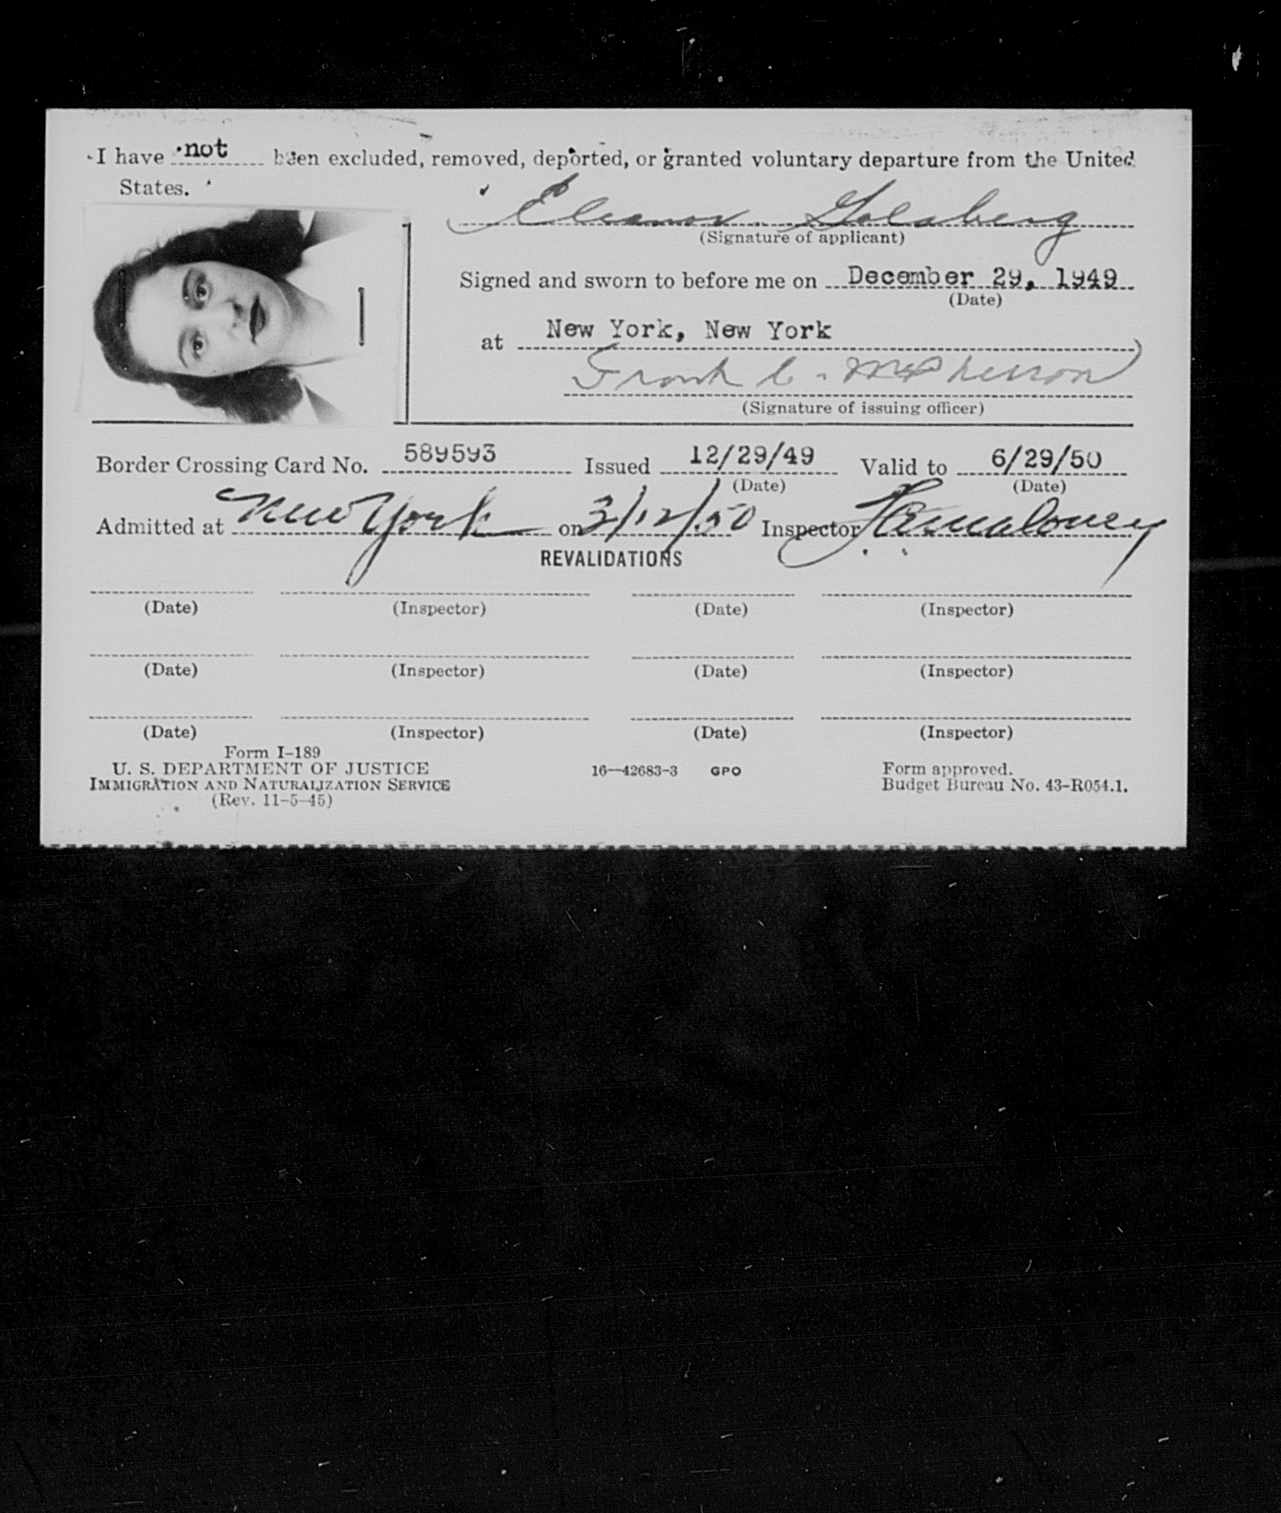 I have not been excluded, removed, deported, or granted voluntary departure from the United
States.
Eleanor Golsberg
(Signature of applicant)
Signed and sworn to before me on December 29, 1949
(Date)
at New York, New York
Frank C. McPherson
(Signature of issuing officer)
Border Crossing Card No. 589593 Issued 12/29/49 Valid to 6/29/50
(Date) (Date)
Admitted at New York on 3/12/50 Inspector
REVALIDATIONS
(Date) (Inspector) (Date) (Inspector)
(Date) (Inspector) (Date) (Inspector)
(Date) (Inspector) (Date) (Inspector)
Form I-189
U. S. DEPARTMENT OF JUSTICE 16—42683-3 GPO Form approved.
IMMIGRATION AND NATURALIZATION SERVICE Budget Bureau No. 43-R054.1.
(Rev. 11-5-45)